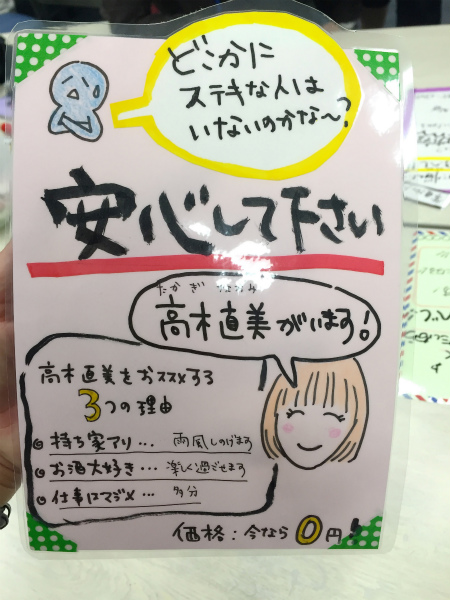 どこかに
ステキな人は
いないのかな〜?
安心して下さい
たかぎ なおみ
高木直美がいます!
高木直美をおススメする
3つの理由
持ち家アリ… 雨風しのげます
お酒大好き… 楽しく過ごせます
仕事はマジメ… 多分
価格:今なら0円!